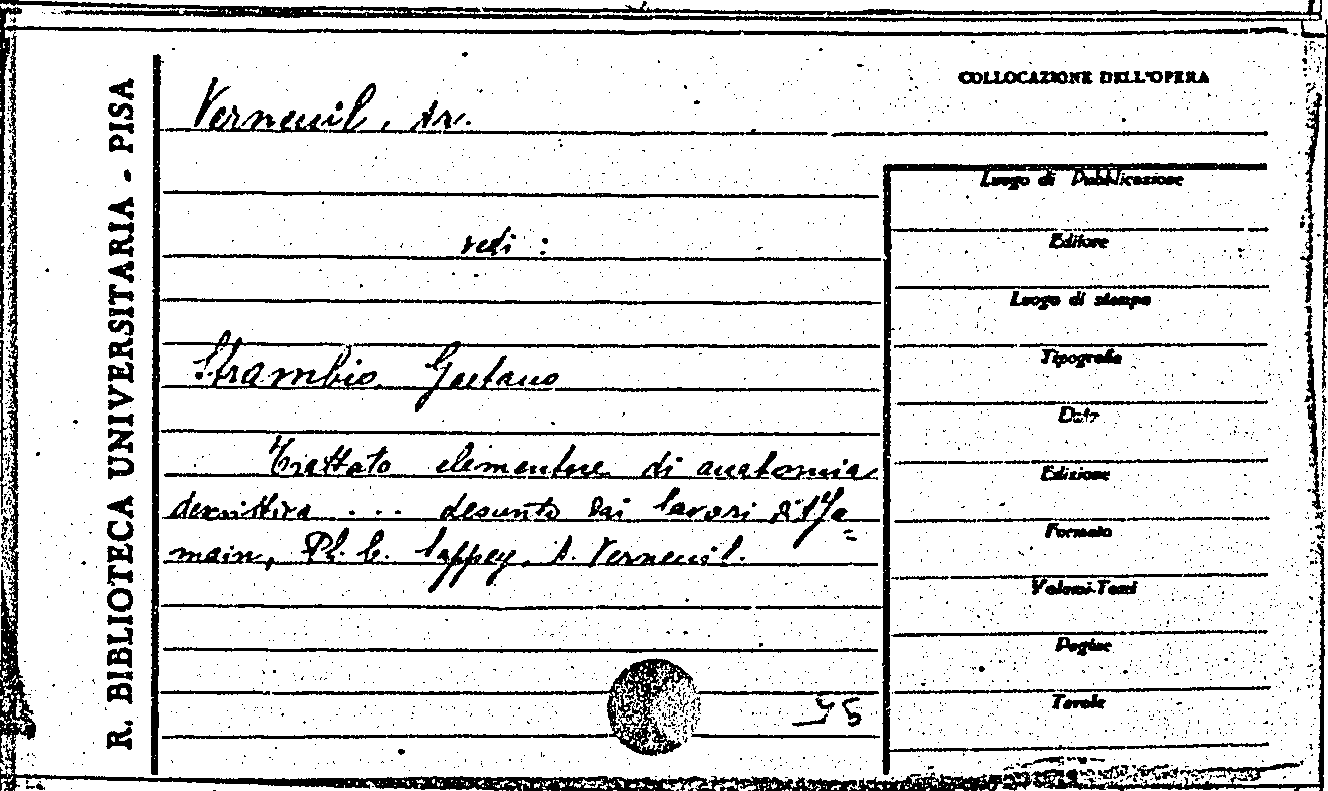 R. BIBLIOTECA UNIVERSITARIA - PISA
COLLOCAZIONE DELL'OPERA
Verneuil, Ar.
vedi :
Strambio Gaetano
Trattato elementare di anatomia
descrittiva ... desunto dai lavori di Ja=
main, Ph. C. Sappey, A. Verneuil.
Luogo di Pubblicazione
Editore
Luogo di stampa
Tipografia
Data
Edizione
Formato
Volumi-Tomi
Pagine
Tavole